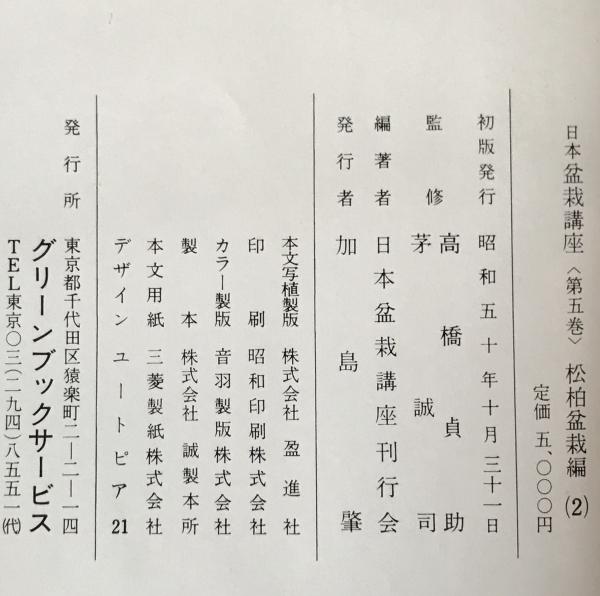 日本盆栽講座〈第五巻〉松柏盆栽編(2)
定価 五、〇〇〇円
初版発行 昭和五十年十月三十一日
監修 高橋貞助
茅誠司
編著者 日本盆栽講座刊行会
発行者 加島肇
本文写植製版 株式会社盈進社
印刷 昭和印刷株式会社
カラー製版 音羽製版株式会社
製本 株式会社誠製本所
本文用紙 三菱製紙株式会社
デザイン ユートピア21
発行所 東京都千代田区猿楽町二―二―一四
グリーンブックサービス
TEL東京〇三(二九四)八五五一(代)